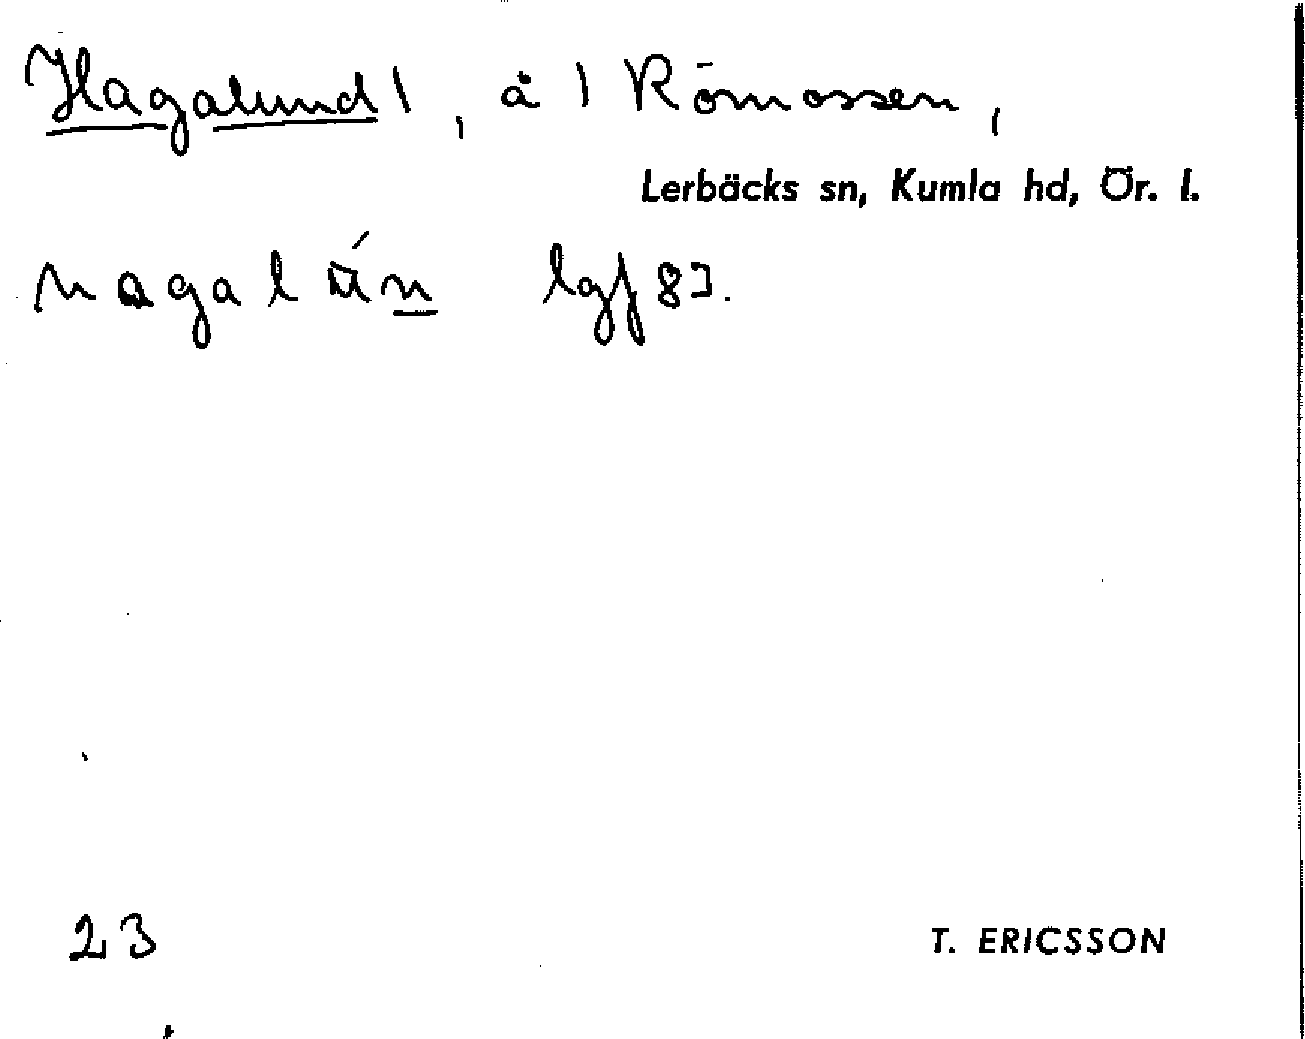 Hagalund 1, å 1 Römossen,
Lerbäcks sn, Kumla hd, Ör. l.
hagalún lgf 83.
23
T. ERICSSON